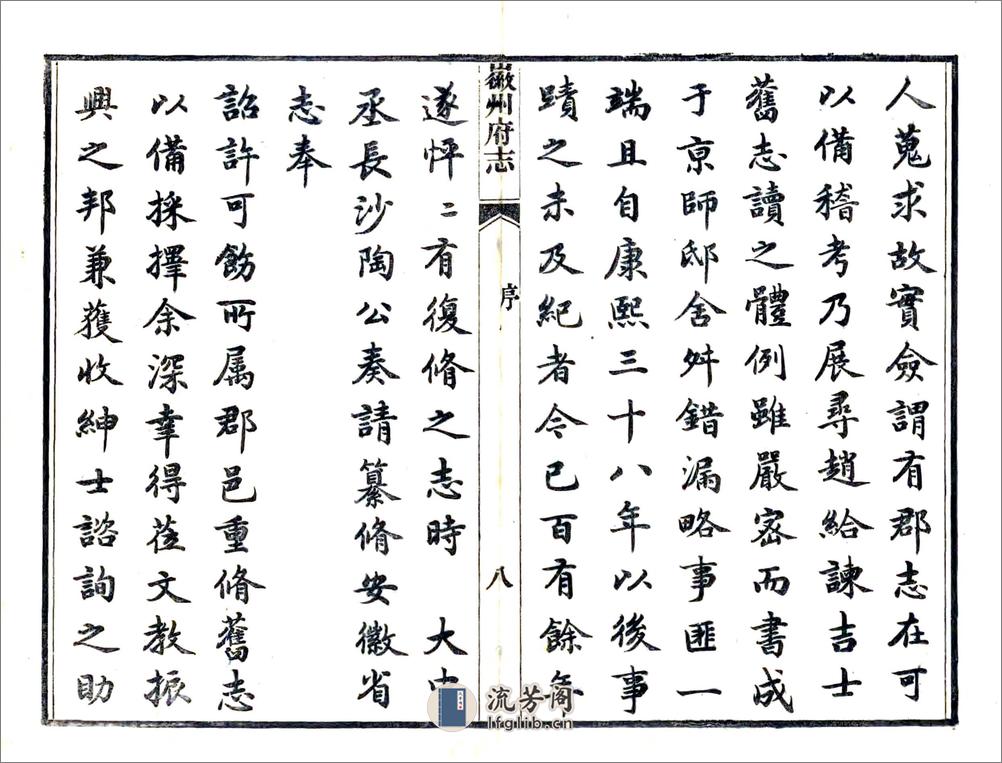 人蒐求故實僉謂有郡志在可
以備稽考乃展尋趙給諫吉士
舊志讀之體例雖嚴密而書成
于亰師邸舍舛錯漏略事匪一
端且自康熙三十八年以後事
蹟之未及紀者今已百有餘年
徽州府志
序
八
遂怦二有復脩之志時 大中
丞長沙陶公奏請纂脩安徽省
志奉
詔許可飭所属郡邑重脩舊志
以備採擇余深幸得莅文教振
興之邦兼獲收紳士諮詢之助
流芳阁
lfglib.cn